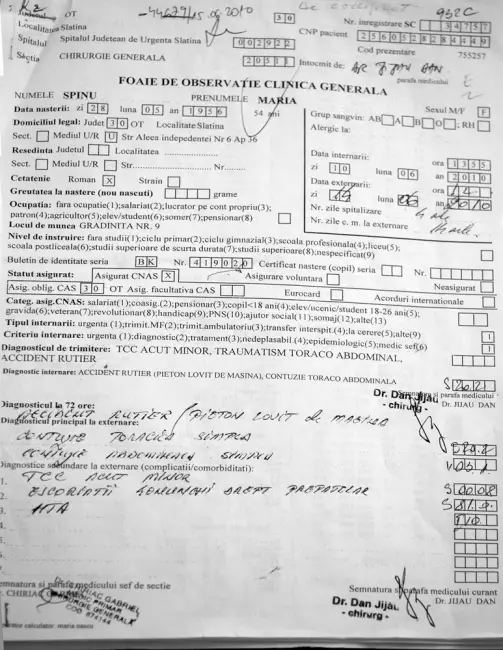 44677/15.06.2010
932C
Judetul OT
30
Nr. inregistrare SC 34757
Localitatea Slatina
CNP pacient 2560528284449
Spitalul Spitalul Judetean de Urgenta Slatina 002922
Cod prezentare 755257
Sectia CHIRURGIE GENERALA 20511
Intocmit de: DR JIJAU DAN
parafa medicului
FOAIE DE OBSERVATIE CLINICA GENERALA
NUMELE SPINU PRENUMELE MARIA
Sexul M/F F
Data nasterii: zi 28 luna 05 an 1956 54 ani
Grup sangvin: A B O; RH
Domiciliul legal: Judet 30 OT Localitate Slatina
Alergic la:
Sect. Mediul U/R U Str Aleea indepedentei Nr 6 Ap 36
Resedinta Judetul Localitatea
Data internarii: ora 1355
Sect. Mediul U/R Str. Nr.
zi 10 luna 06 an 2010
Cetatenie Roman X Strain
Data externarii: ora 14
Greutatea la nastere (nou nascuti) grame
zi 14 luna 06 an 2010
Ocupatia: fara ocupatie(1);salariat(2);lucrator pe cont propriu(3);
Nr. zile spitalizare 4 zile
patron(4);agricultor(5);elev/student(6);somer(7);pensionar(8)
Nr. zile c. m. la externare
Locul de munca GRADINITA NR. 9
Nivel de instruire: fara studii(1);ciclu primar(2);ciclu gimnazial(3);scoala profesionala(4);liceu(5);
scoala postliceala(6);studii superioare de scurta durata(7);studii superioare(8);nespecificat(9)
Buletin de identitate seria BK Nr. 419020 Certificat nastere (copil) seria Nr.
Statut asigurat: Asigurat CNAS X Asigurare voluntara Neasigurat
Asig. oblig. CAS 30 OT Asig. facultativa CAS Eurocard Acorduri internationale
Categ. asig.CNAS: salariat(1);coasig.(2);pensionar(3);copil<18 ani(4);elev/ucenic/student 18-26 ani(5);
gravida(6);veteran(7);revolutionar(8);handicap(9);PNS(10);ajutor social(11);somaj(12);alte(13)
Tipul internarii: urgenta (1);trimit.MF(2);trimit.ambulatoriu(3);transfer interspit.(4);la cerere(5);alte(9) 1
Criteriu internare: urgenta (1);diagnostic(2);tratament(3);nedeplasabil.(4);epidemiologic(5);medic sef(6) 1
Diagnosticul de trimitere: TCC ACUT MINOR, TRAUMATISM TORACO ABDOMINAL,
ACCIDENT RUTIER
Diagnostic internare: ACCIDENT RUTIER (PIETON LOVIT DE MASINA), CONTUZIE TORACO ABDOMINALA
Dr. Dan Jijau
- chirurg -
Semnatura si parafa medicului
Dr. JIJAU DAN
Diagnosticul la 72 ore:
ACCIDENT RUTIER / PIETON LOVIT de MASINA
Diagnosticul principal la externare:
CONTUZIE TORACICA SIMPLA
CONTUZIE ABDOMINALA SIMPLA
Diagnostice secundare la externare (complicatii/comorbiditati):
1. TCC ACUT MINOR
2. ESCORIATII GENUNCHI DREPT PREPATELAR
3. HTA
4.
5.
Semnatura si parafa medicului sef de sectie
Semnatura si parafa medicului curant
Dr. JIJAU DAN
Dr. Dan Jijau
- chirurg -
CHIRIAC GABRIEL
MEDIC PRIMAR
CHIRURGIE GENERALA
COD 874144
Operator calculator: maria nascu